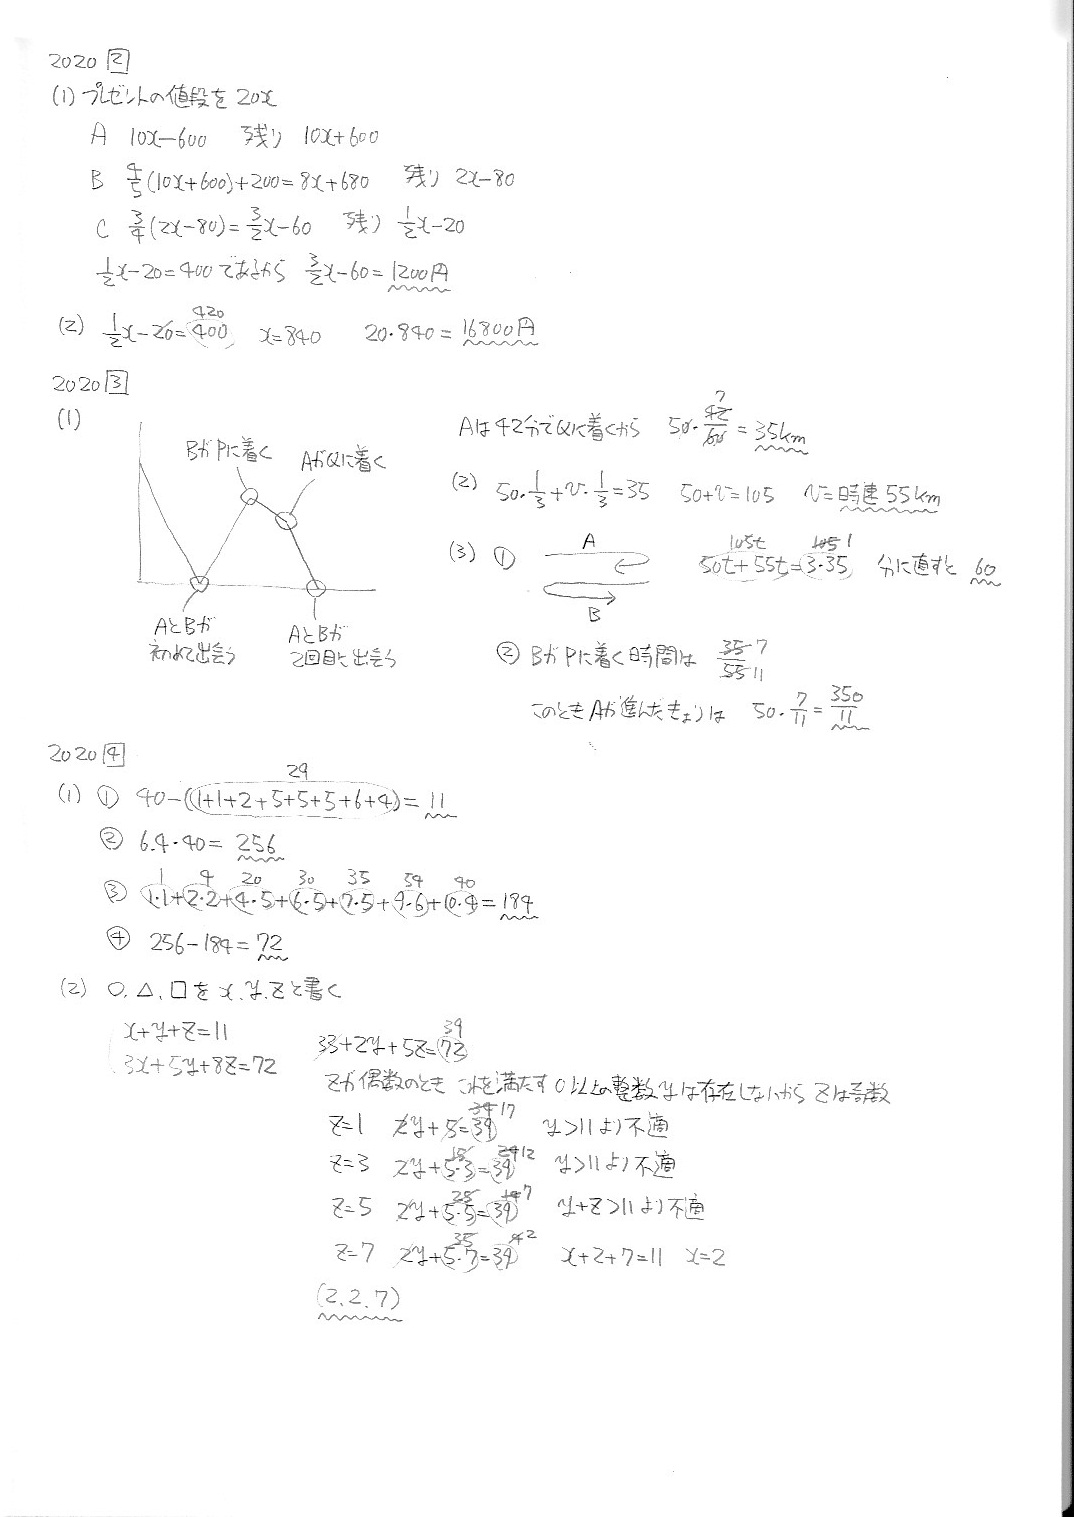 2020 2
(1) プレゼントの値段を 20x
A 10x-600 残り 10x+600
B 4/5(10x+600)+200=8x+680 残り 2x-80
C 3/4(2x-80)=3/2x-60 残り 1/2x-20
1/2x-20=400であるから 3/2x-60=1200円
420
(2) 1/2x-20=400 x=840 20・840=16800円
2020 3
(1)
BがPに着く
AがQに着く
AとBが
初めて出会う
AとBが
2回目に出会う
7
Aは42分でQに着くから 50・42/60=35km
(2) 50・1/3+v・1/3=35 50+v=105 v=時速55km
(3) ① A
B
105t 105 1
50t+55t=3・35 分に直すと 60
② BがPに着く時間は 35 7/55 11
このときAが進んだきょりは 50・7/11=350/11
2020 4
29
(1) ① 40-(1+1+2+5+5+5+6+4)=11
② 6.4・40=256
1 4 20 30 35 54 40
③ 1・1+2・2+4・5+6・5+7・5+9・6+10・4=184
④ 256-184=72
(2) ○,△,□をx,y,zと書く
x+y+z=11
3x+5y+8z=72
39
33+2y+5z=72
zが偶数のとき これを満たす0以上の整数yは存在しないから zは奇数
34 17
z=1 2y+5=39 y>11より不適
15 24 12
z=3 2y+5・3=39 y>11より不適
25 14 7
z=5 2y+5・5=39 y+z>11より不適
35 4 2
z=7 2y+5・7=39 x+2+7=11 x=2
(2,2,7)